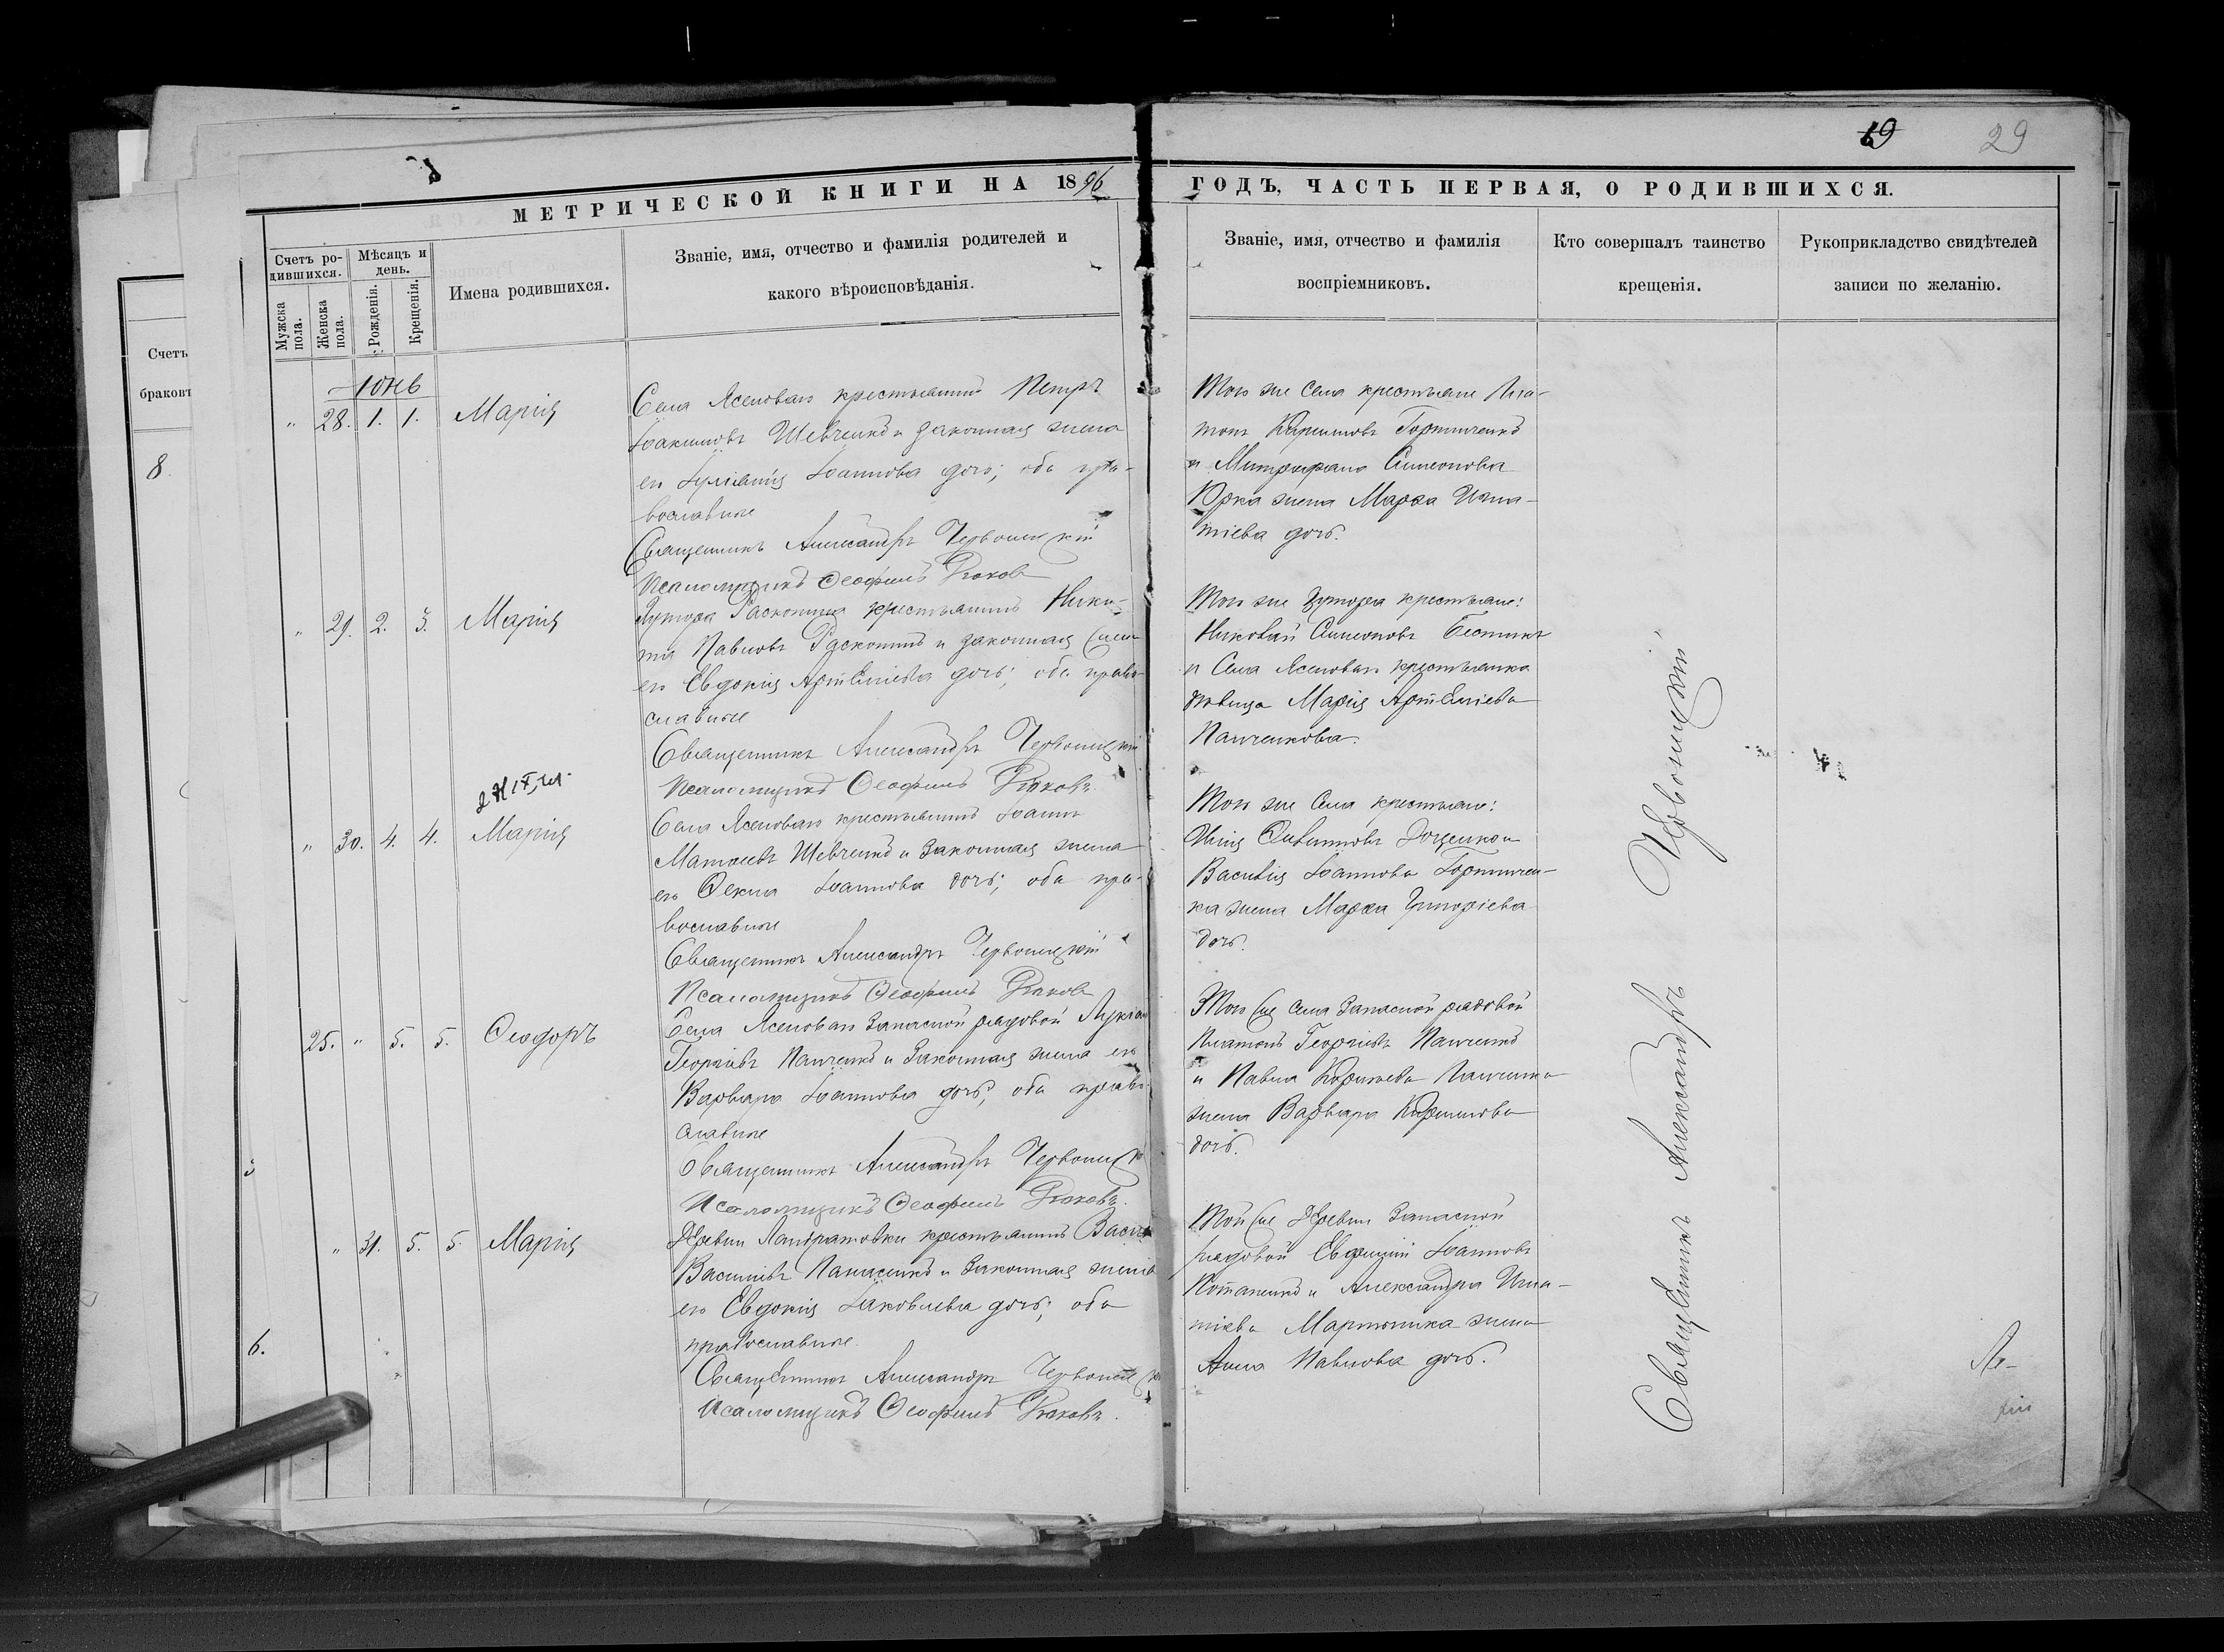 19 29
МЕТРИЧЕСКОЙ КНИГИ НА 1896 ГОДЪ, ЧАСТЬ ПЕРВАЯ, О РОДИВШИХСЯ.
Счетъ родившихся.
Мужска пола.
Женска пола.
Мѣсяцъ и день.
Рожденія.
Крещенія.
Имена родившихся.
Званіе, имя, отчество и фамилія родителей и
какого вѣроисповѣданія.
Званіе, имя, отчество и фамилія
воспріемниковъ.
Кто совершалъ таинство
крещенія.
Рукоприкладство свидѣтелей
записи по желанію.
Счетъ
браковъ
8.
6.
Юнь
" 28. 1. 1. Марія
Села Ясеноваго крестьянинъ Петръ
Іоакимовъ Шевченко и законная жена
его Іуліанія Іоаннова дочь; оба пра-
вославные
Священникъ Александръ Червонецкій
Псаломщикъ Ѳеофилъ
Того же села крестьяне Пла-
тонъ Горпинченко
и Митрофана Симеонова
жена Марѳа Игна-
тіева дочь.
" 29. 2. 3. Марія
Хутора крестьянинъ Ники-
та Павловъ и законная жена
его Евдокія Артеміева дочь; оба право-
славные
Священникъ Александръ Червонецкій
Псаломщикъ Ѳеофилъ
Того же хутора крестьяне:
Николай Симеоновъ
и села Ясеноваго крестьянка
дѣвица Марія Артеміева
Панченкова.
" 30. 4. 4. Марія
Села Ясеноваго крестьянинъ Іоаннъ
Матѳеевъ Шевченко и законная жена
его Ѳекла Іоаннова дочь; оба пра-
вославные
Священникъ Александръ Червонецкій
Псаломщикъ Ѳеофилъ
Того же села крестьяне:
Доценко и
Василія Іоаннова Горпинчен-
ка жена Марѳа Григоріева
дочь.
25. " 5. 5. Ѳеодоръ
Села Ясеноваго запасной рядовой Лукіанъ
Георгіевъ Панченко и законная жена его
Варвара Іоаннова дочь; оба право-
славные
Священникъ Александръ
Псаломщикъ Ѳеофилъ
Того же села запасной рядовой
Платонъ Георгіевъ Панченко
и Павла Панченка
жена Варвара
дочь.
" 31. 5. 5. Марія
Деревни крестьянинъ
Василіевъ Панасенко и законная жена
его Евдокія Іаковлева дочь; оба
православные.
Священникъ Александръ
Псаломщикъ Ѳеофилъ
Той же деревни запасной
рядовой Іоанновъ
и Александра Игна-
тіева жена
Анна Павлова дочь.
Священникъ Александръ Червонецкій